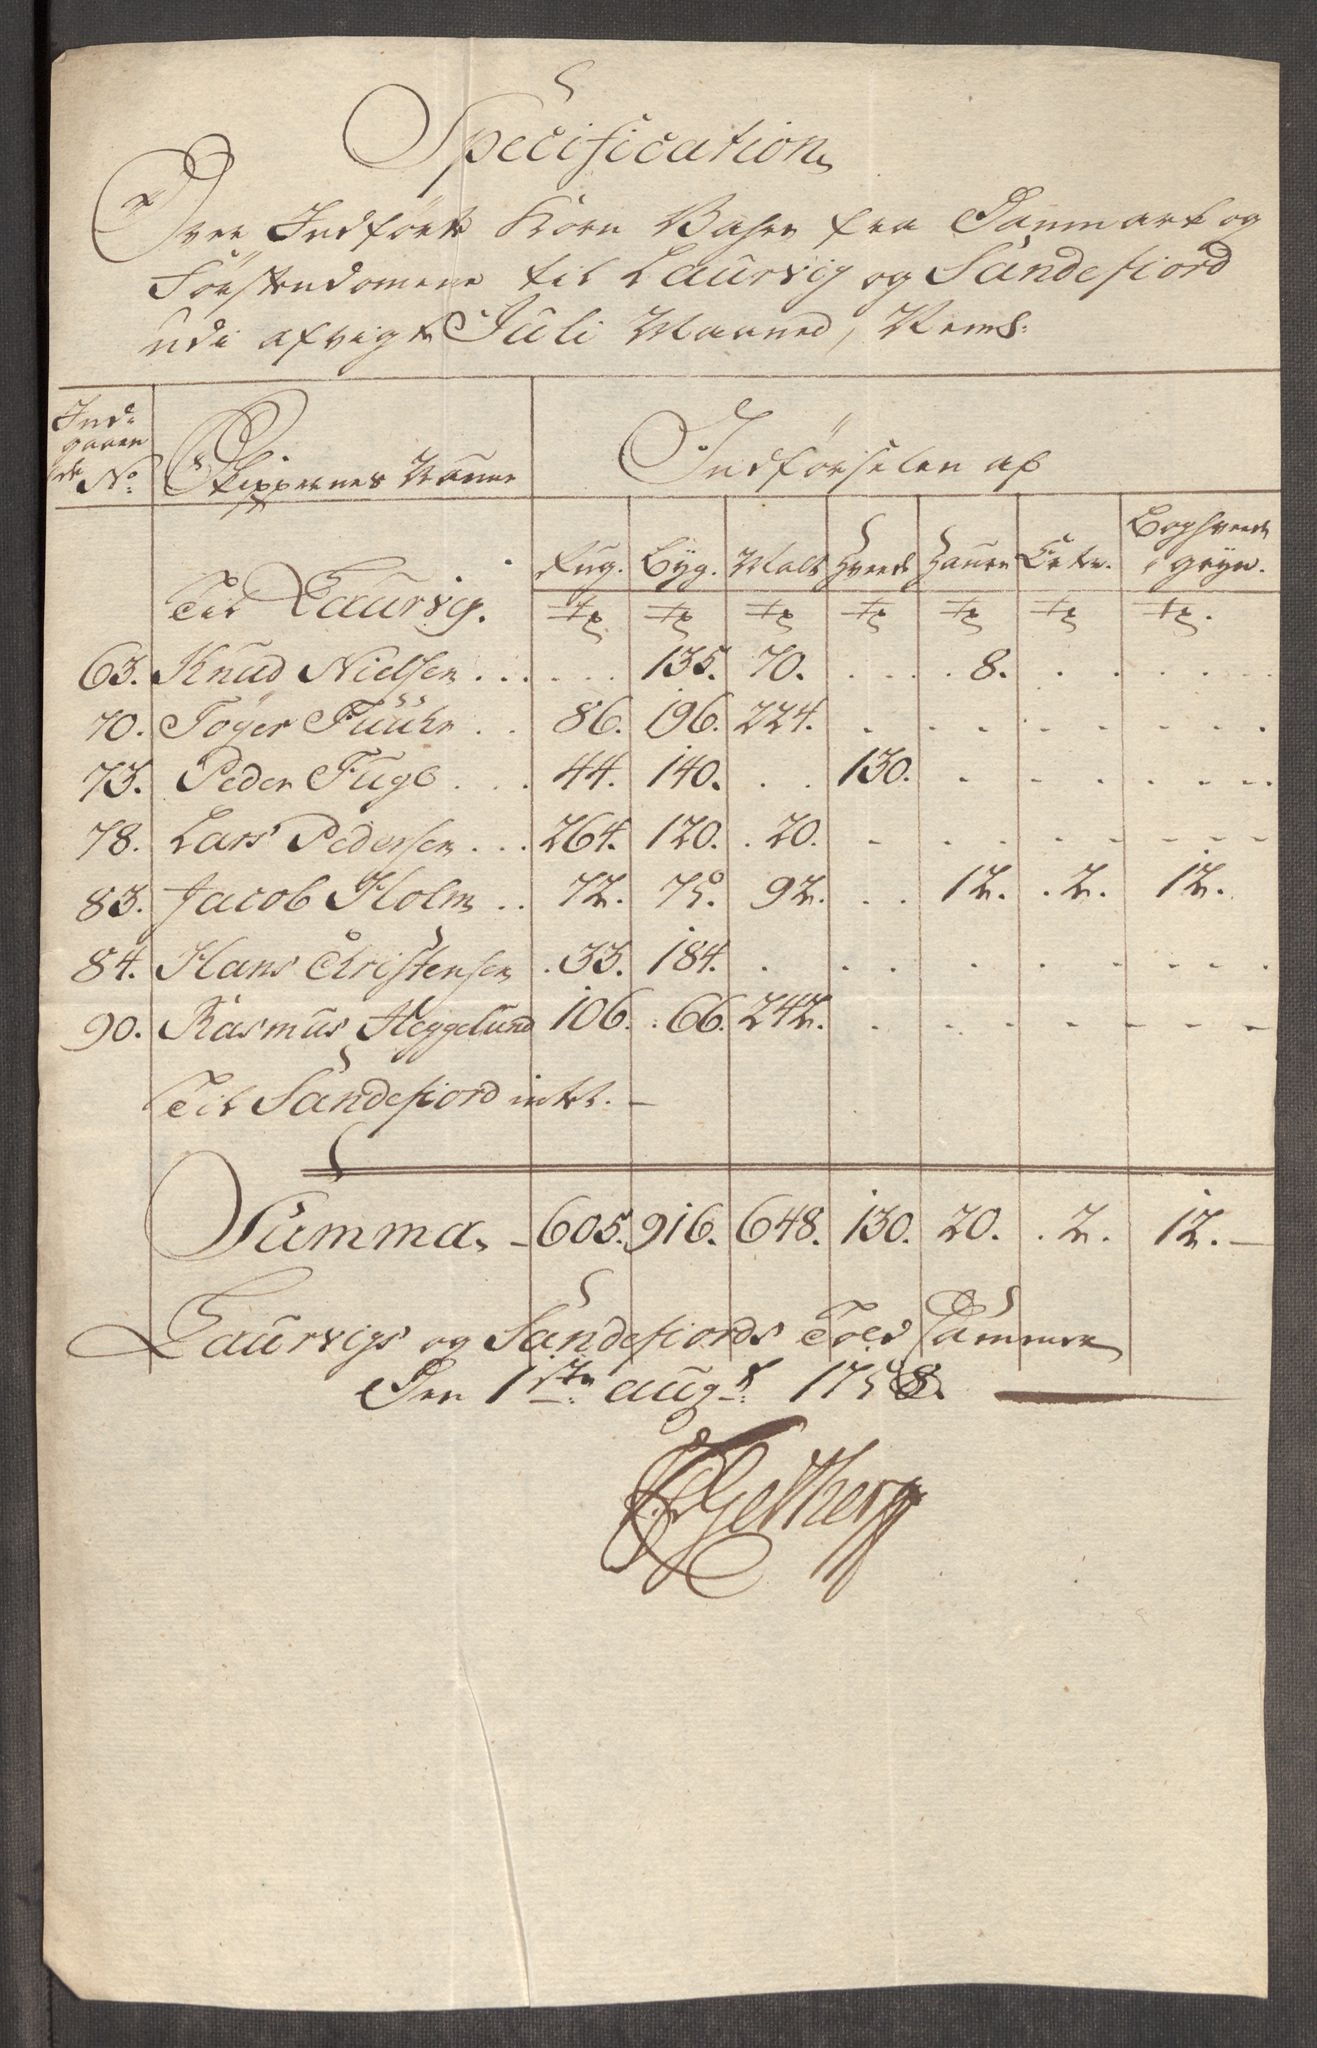 Specification
Over Indførte Korn Vahre fra Danmark og
Förstendomene til Laurvig og Sandefiord
udi afvigte Juli Maaned, Neml:
Ind-
gaaen
de No:
Skippernes Naune
Indførselen af
Rug. Byg. Malt Hveede Haure Erter. Boghveede
gryn.
Til Laurvig. Tr Tr Tr Tr Tr Tr Tr.
63. Knud Nielsen . . . . . . 135. 70. . . . . 8. . . . . . .
70. Töyer Fuuhr . . 86. 196. 224. . . - - - - - . .
73. Peder Fugl . . . 44. 140. . . 130. . - - - - - -
78. Lars Pedersen . . . 264. 120. . 20. - . . . - - - -
83. Jacob Holm . . 72. 75. 92. . . 12. . 2. 12.
84. Hans Christensen . 33. 184. . . . . . - - - .
90. Rasmus Heggelund 106. . 66. 242. . - . - - - - -
Til Sandefiord intet. —
Summa - 605. 916. 648. 130. 20. . 2. 12. —
Laurvigs og Sandefiords Told Cammer
Den 1ste augt: 1758.